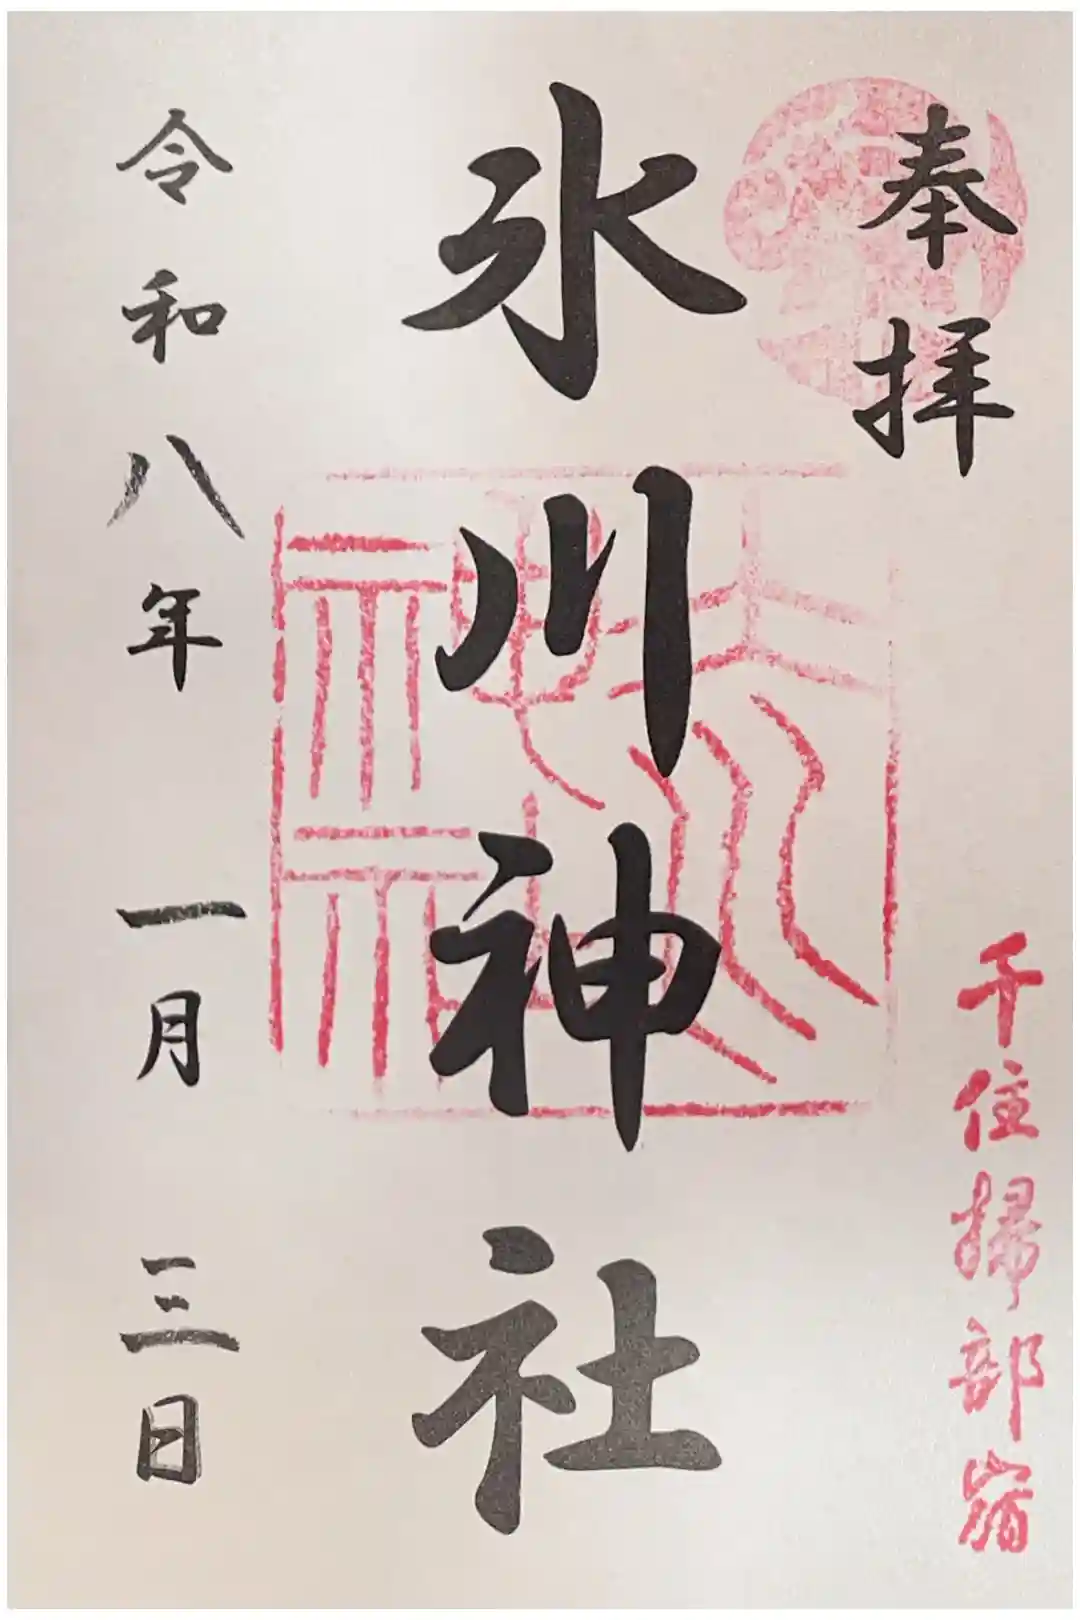 奉拝
千住掃部宿
氷川神社
氷川神社
令和八年 一月 三日